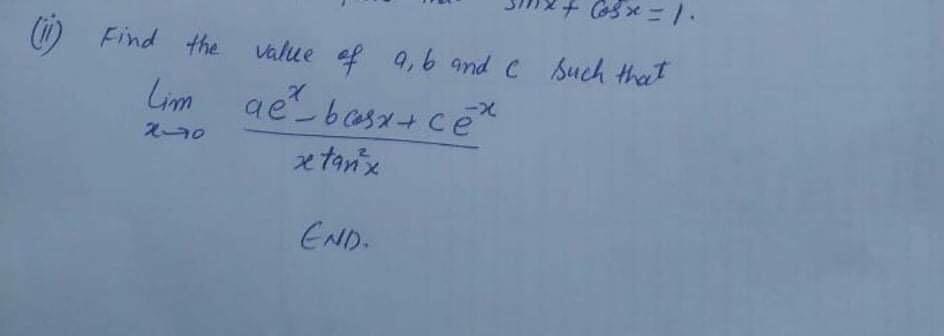 sinx + Cosx = 1.
(ii) Find the value of a, b and c such that
Lim ae^x - b cosx + ce^-x
x→0 x tan²x
END.